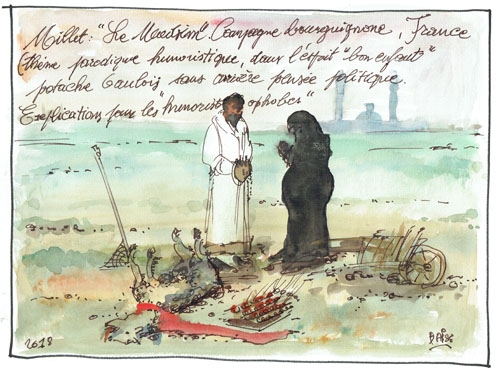 Millet: "Le Muezzin" Campagne bourguignone, France
thème parodique humoristique, dans l'esprit "bon enfant"
potache Gaulois sans arrière pensée politique.
Explication pour les "humoristophobes"
2018